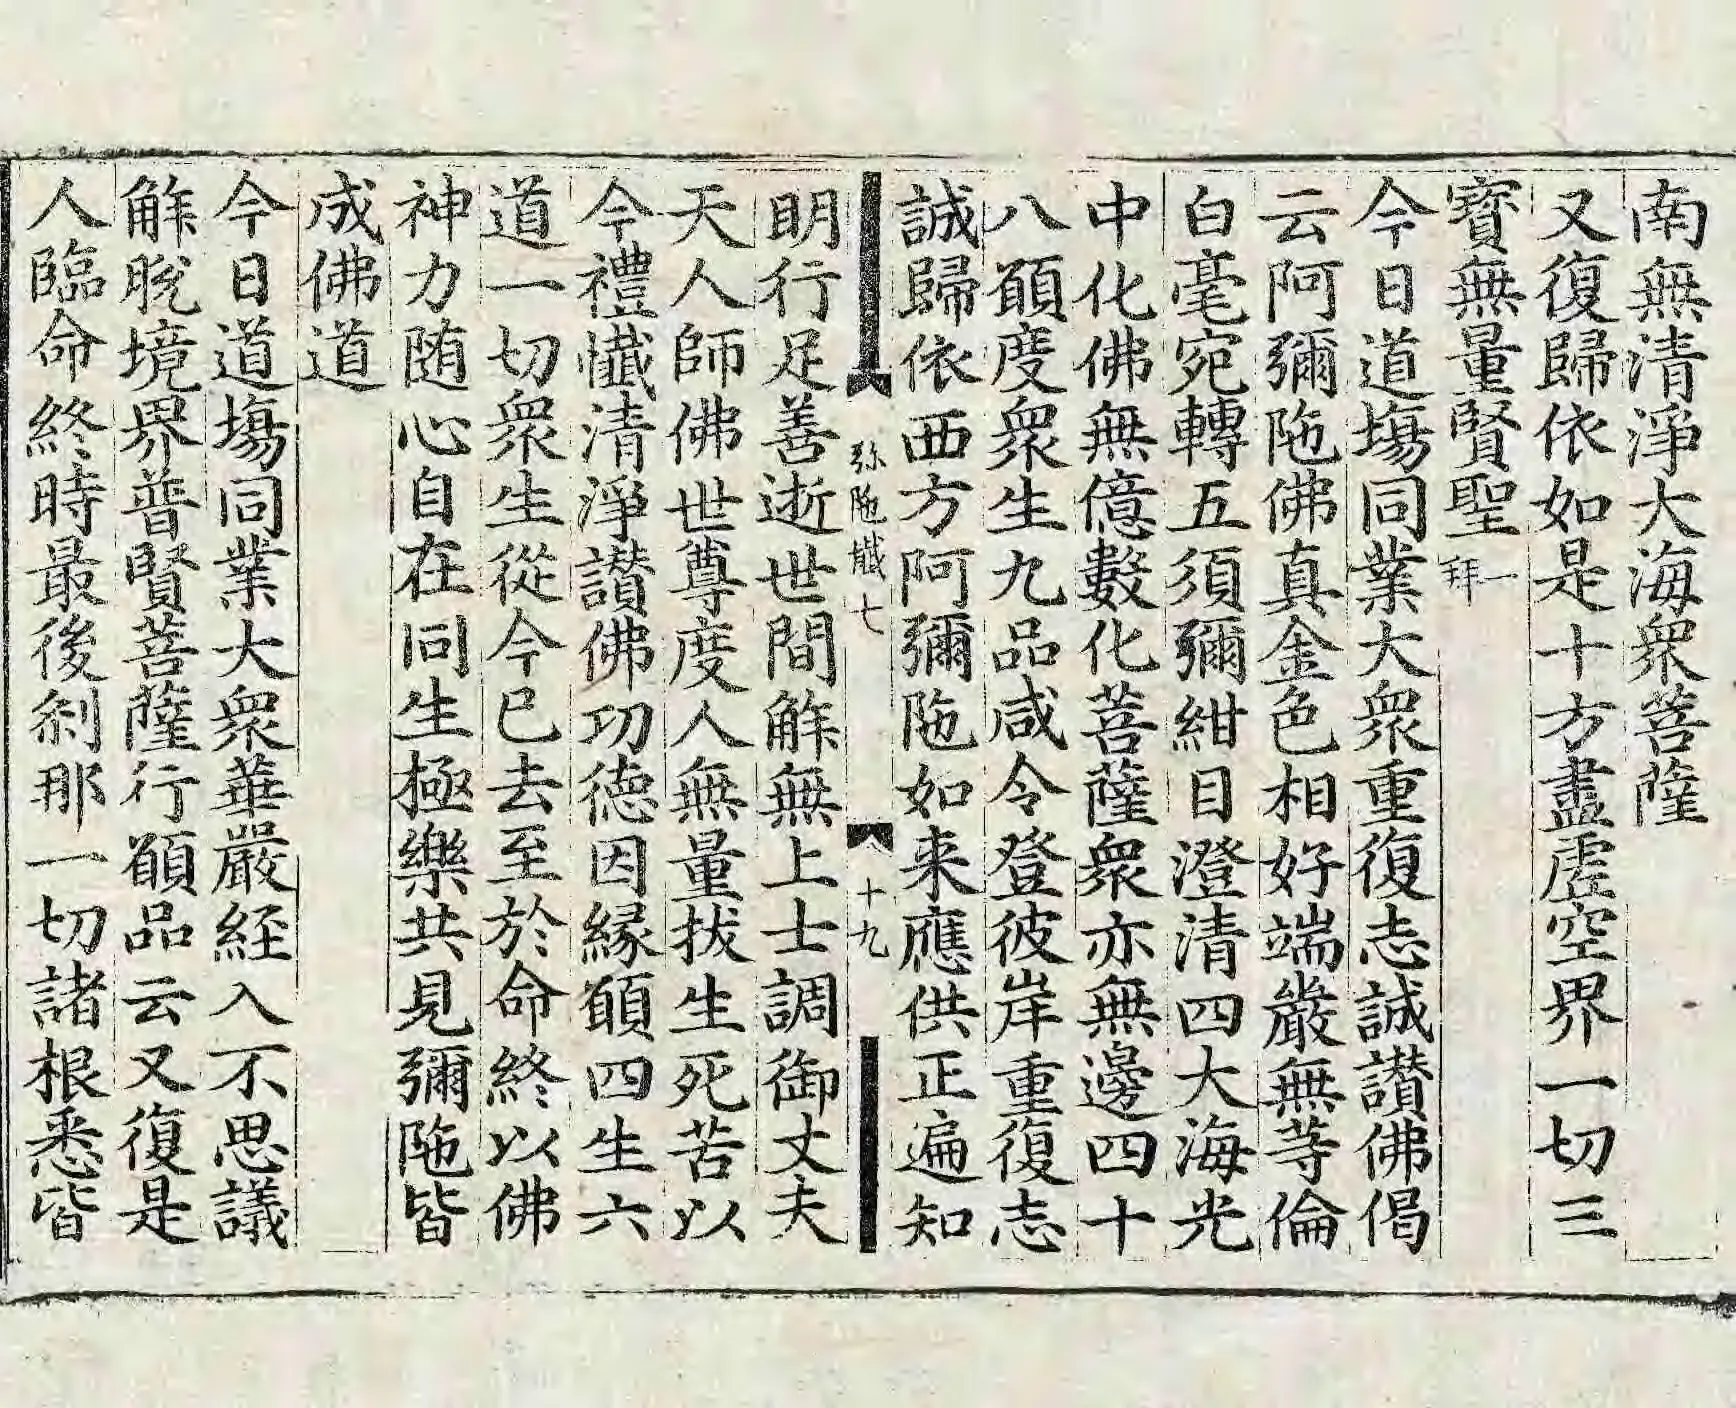 南無清淨大海衆菩薩
又復歸依如是十方盡虛空界一切三
寶無量賢聖一拜
今日道場同業大衆重復志誠讃佛偈
云阿彌陁佛真金色相好端嚴無等倫
白毫宛轉五須彌紺目澄清四大海光
中化佛無億數化菩薩衆亦無邊四十
八願度衆生九品咸令登彼岸重復志
誠歸依西方阿彌陁如来應供正遍知
弥陁懺七 十九
明行足善逝世間解無上士調御丈夫
天人師佛世尊度人無量拔生死苦以
今禮懺清淨讃佛功德因緣願四生六
道一切衆生從今已去至於命終以佛
神力随心自在同生極樂共見彌陁皆
成佛道
今日道場同業大衆華嚴經入不思議
解脫境界普賢菩薩行願品云又復是
人臨命終時最後刹那一切諸根悉皆